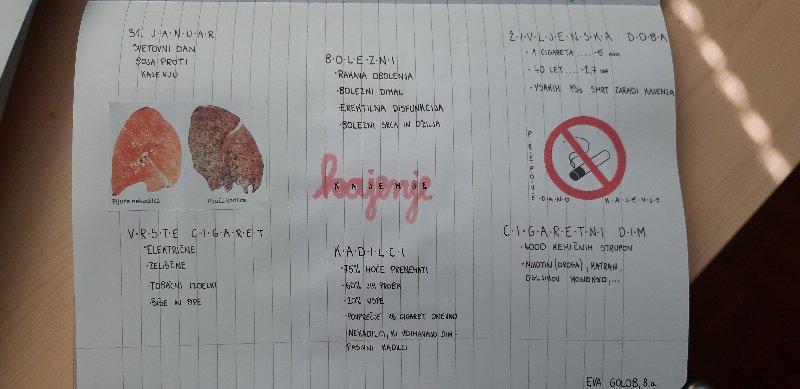 31. J·A·N·U·A·R
SVETOVNI DAN
BOJA PROTI
KAJENJU
Pljuča nekadilca
Pljuča kadilca
V·R·S·T·E C·I·G·A·R·E·T
·ELEKTRIČNE
·ZELIŠČNE
·TOBAČNI IZDELKI
·ŠIŠE IN PIPE
B·O·L·E·Z·N·I
·RAKAVA OBOLENJA
·BOLEZNI DIHAL
·EREKTILNA DISFUNKCIJA
·BOLEZNI SRCA IN OŽILJA
kajenje
K A J E N J E
K·A·D·I·L·C·I
·75% HOČE PRENEHATI
·60% JIH PROBA
·20% USPE
·POVPREČJE 16 CIGARET DNEVNO
NEKADILCI, KI VDIHAVAJO DIM-
PASIVNI KADILCI
Ž·I·V·L·J·E·N·S·K·A D·O·B·A
·1 CIGARETA ....-5 min
·40 LET .... -2,7 let
·VSAKIH 13s SMRT ZARADI KAJENJA
P·R·E·P·O·V·E·D·A·N·O K·A·J·E·N·J·E
C·I·G·A·R·E·T·N·I D·I·M
·4000 KEMIČNIH STRUPOV
·NIKOTIN (DROGA), KATRAN,
OGLJIKOV MONOKSID,...
EVA GOLOB, 8.a